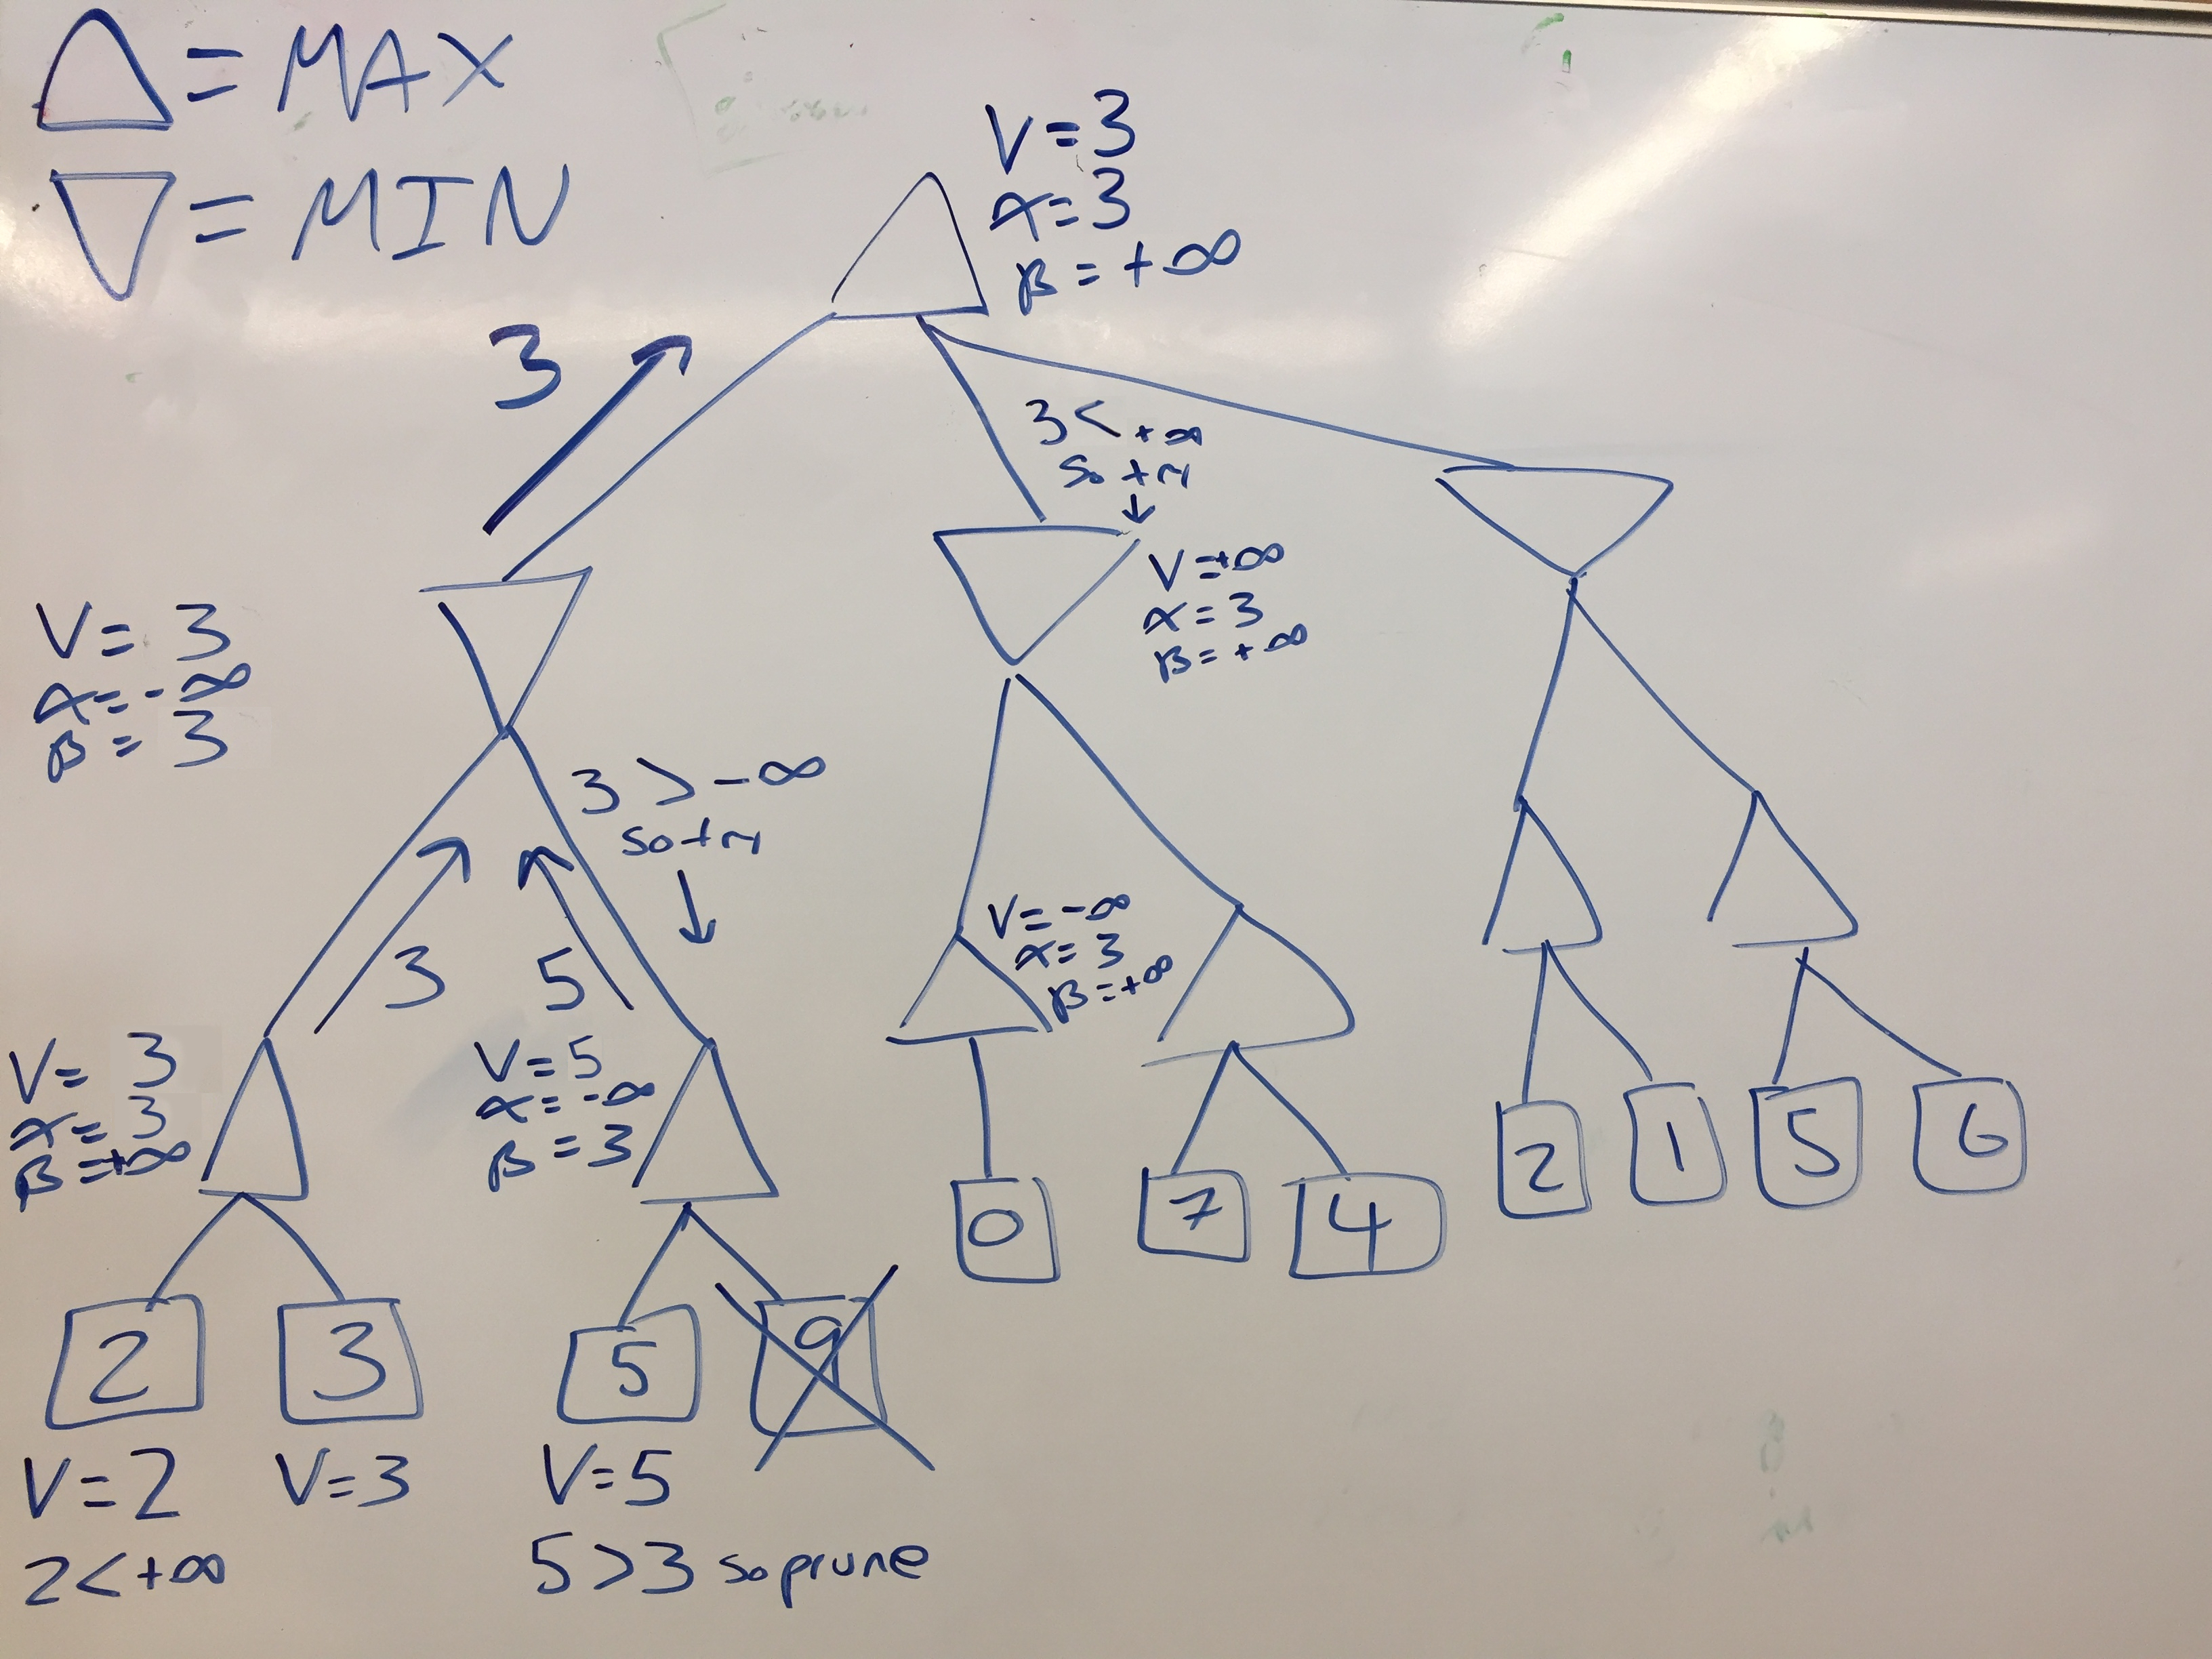 △ = MAX
▽ = MIN
V=3
α=3
β=+∞
3
3<+∞
so try
↓
V=+∞
α=3
β=+∞
V= 3
α=-∞
β= 3
3 > -∞
so try
↓
3
5
V= 3
α= 3
β=+∞
V=5
α=-∞
β=3
V=-∞
α=3
β=+∞
2
3
5
9
0
7
4
2
1
5
6
V=2
2<+∞
V=3
V=5
5>3 so prune